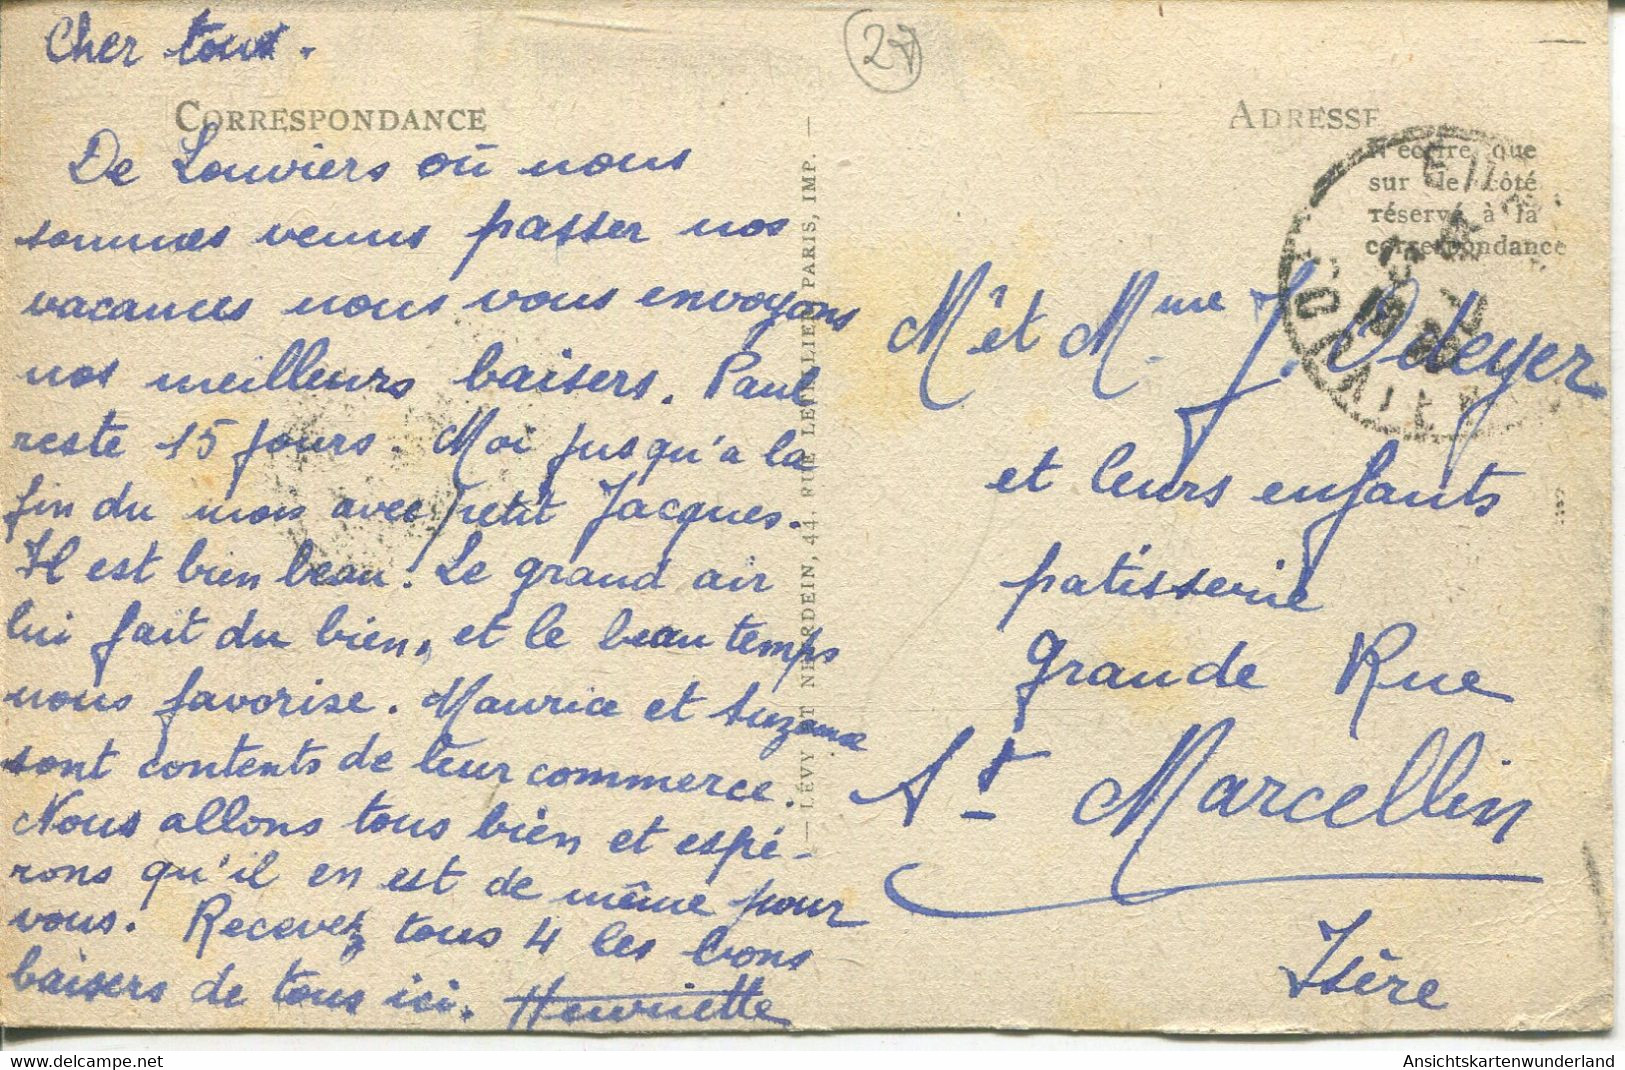 Cher tous.
27
CORRESPONDANCE
ADRESSE
N'écrire que
sur le côté
réservé à la
correspondance
De Louviers où nous
sommes venus passer nos
vacances nous vous envoyons
nos meilleurs baisers. Paul
reste 15 jours. Moi jusqu'a la
fin du mois avec petit Jacques.
Il est bien beau! Le grand air
lui fait du bien, et le beau temps
nous favorise. Maurice et Suzanne
sont contents de leur commerce.
Nous allons tous bien et espé-
rons qu'il en est de même pour
vous. Recevez tous 4 les bons
baisers de tous ici. Henriette
LÉVY ET NEURDEIN, 44, RUE LETELLIER, PARIS, IMP.
Mr et Mme J. Odeyer
et leurs enfants
patisserie
Grande Rue
St Marcellin
Isère
AnsichtskartenWunderland